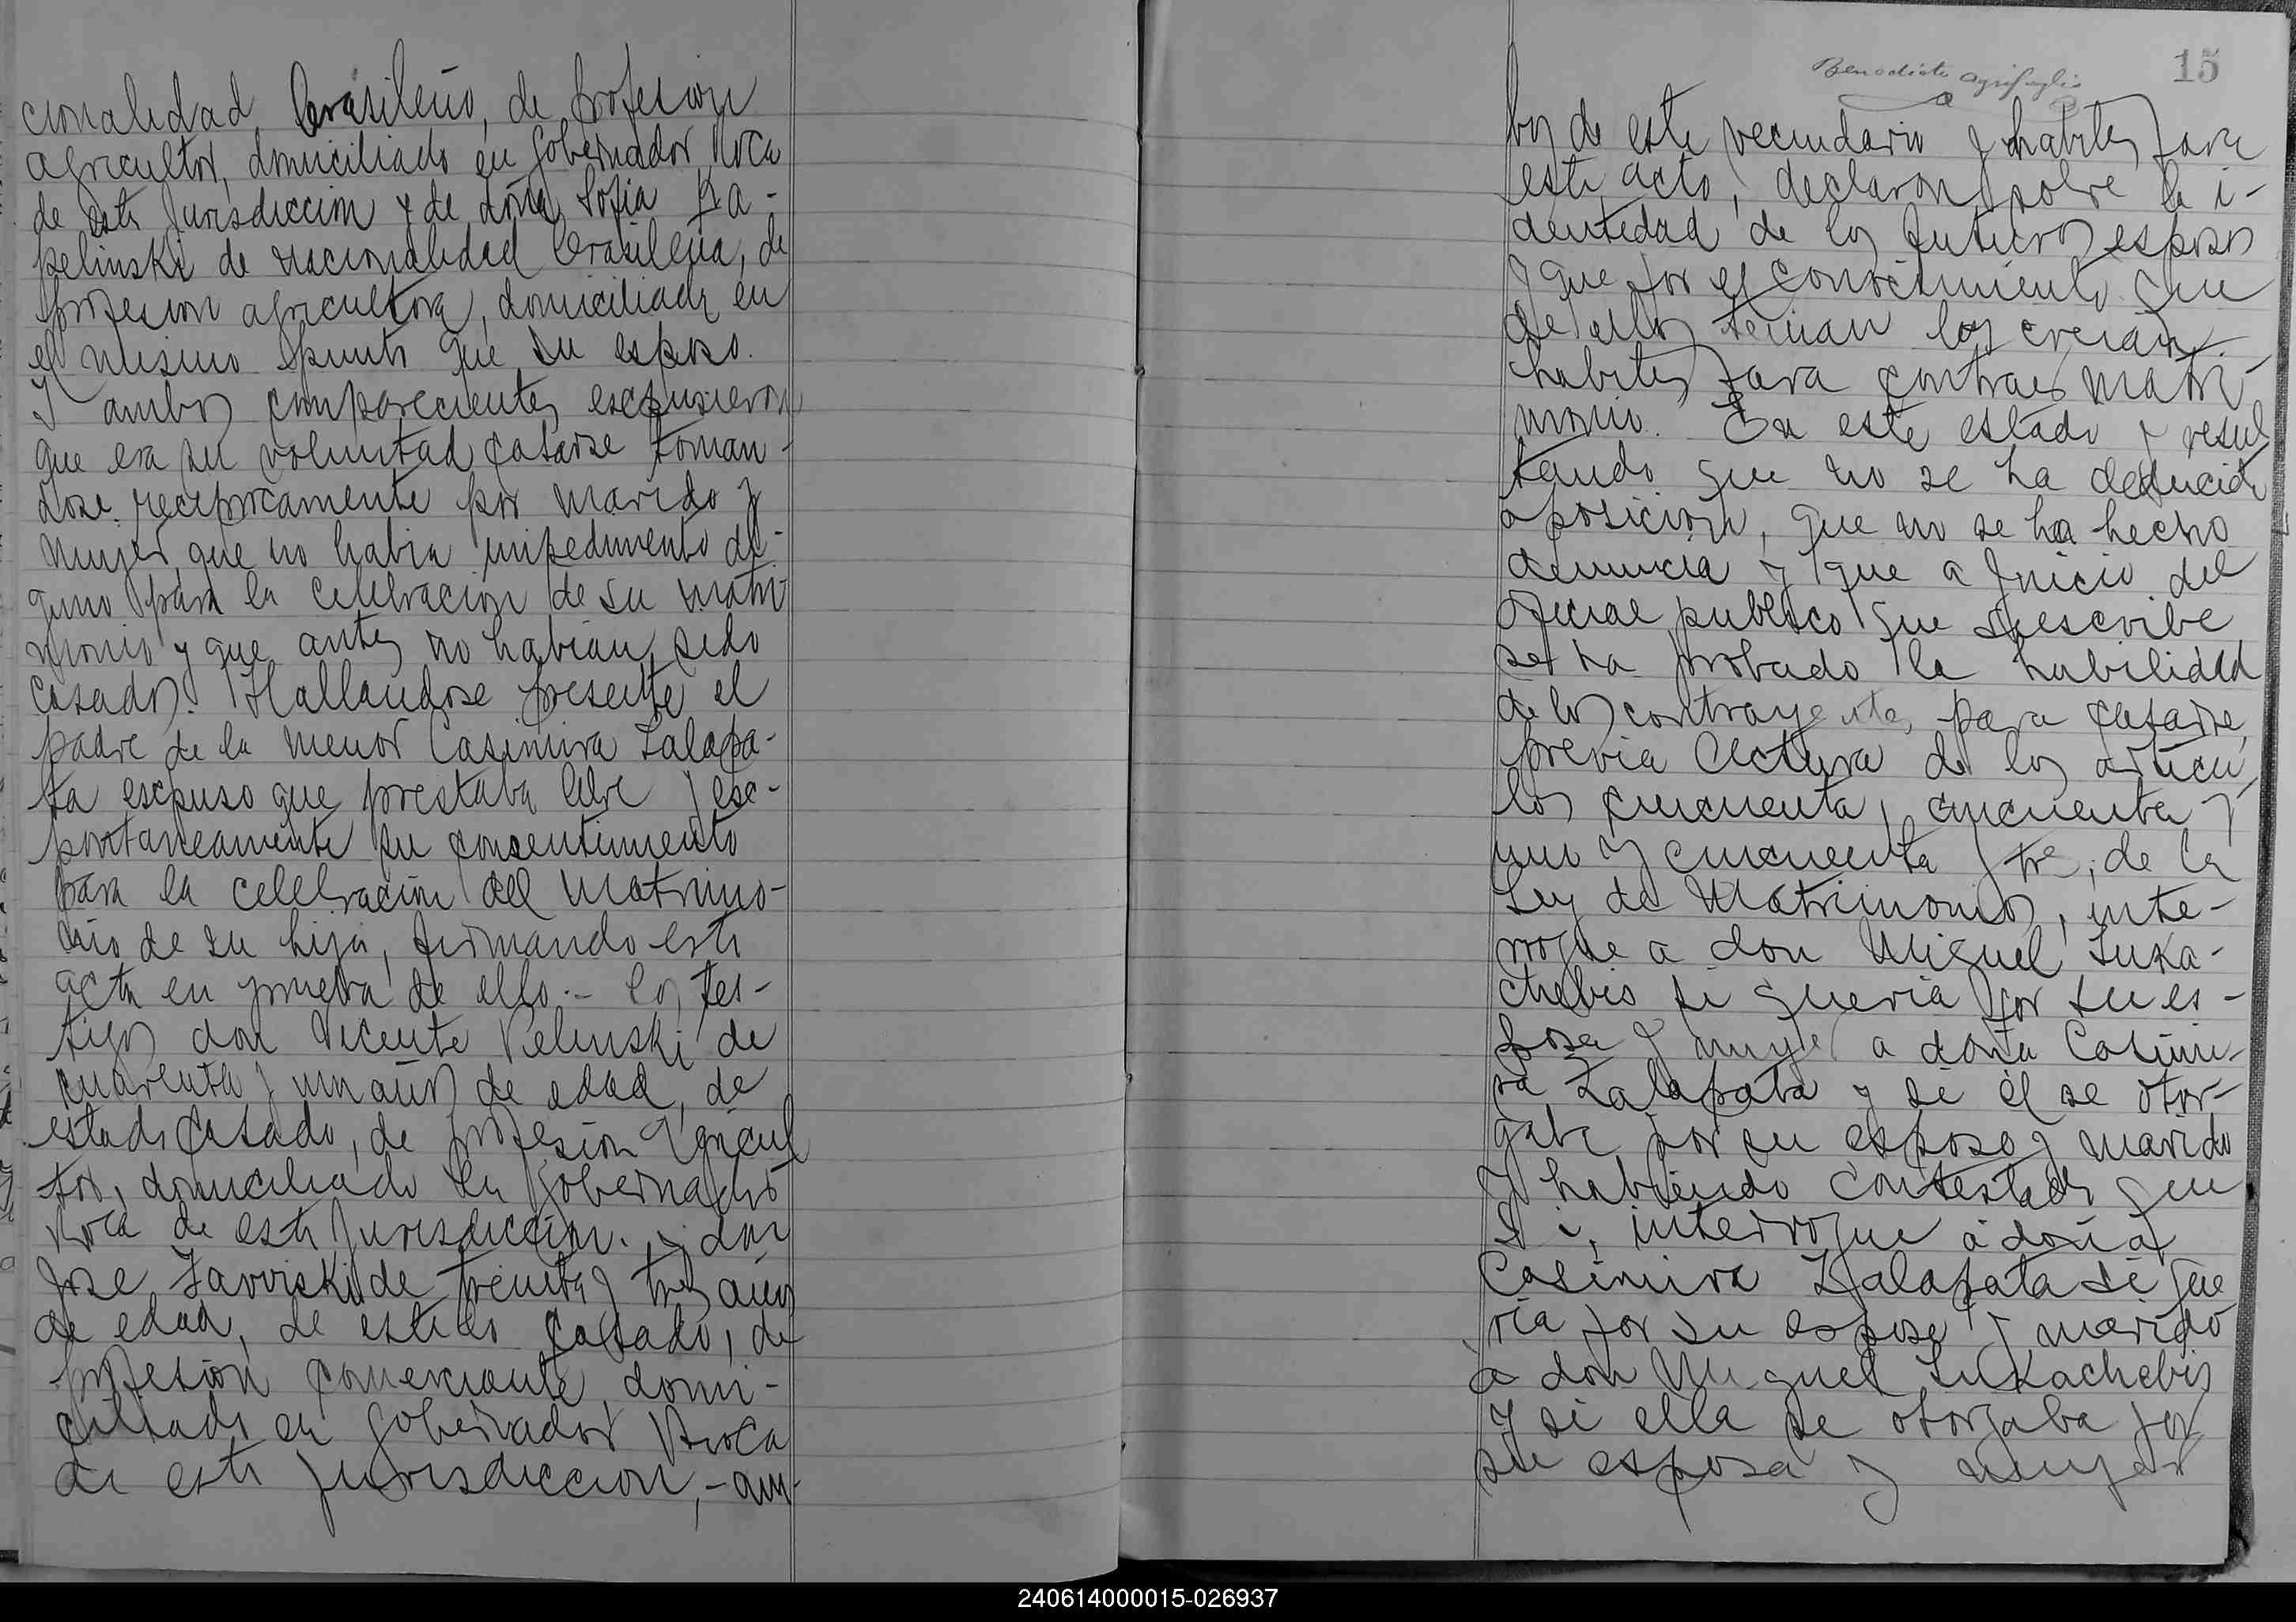 cionalidad brasileño, de profesion
agricultor, domiciliado en Gobernador Roca
de esta Jurisdiccion y de doña Sofia Ka-
pelinski de nacionalidad brasileña, de
profesion agricultora, domiciliada en
el mismo punto que su esposo.
Y ambos comparecientes escpusieron
que era su voluntad casarse toman-
dose reciprocamente por marido y
mujer, que no habia impedimento al-
guno para la celebracion de su matri
monio y que antes no habian sido
casados. Hallandose presente el
padre de la menor Casimira Zalapa-
ta escpuso que prestaba libre y esc-
pontaneamente su consentimiento
para la celebracion del matrimo-
nio de su hija, firmando esta
acta en prueba de ello.- Los tes-
tigos don Vicente Pelinski de
cuarenta y un años de edad, de
estado casado, de profesion Agricul
tor, domiciliado en Gobernador
Roca de esta Jurisdiccion. y don
Jose Zavviski de treinta y tres años
de edad, de estado casado, de
profesion comerciante, domi-
ciliado en Gobernador Roca
de esta Jurisdiccion,- am-
15
Benedicto
bos de este vecindario y habiles para
este acto, declaron sobre la i-
dentidad de los futuros esposos
y que por el conocimiento que
de ellos tenian los creian
habiles para contraer matri-
monio. En este estado y resul
tando que no se ha deducido
oposicion, que no se ha hecho
denuncia y que a Juicio del
oficial publico que suescribe
se ha probado la habilidad
de los contrayentes para casarse,
previa lectura de los articu
los cincuenta, cincuenta y
uno y cincuenta y tres, de la
Ley de Matrimonios, inte-
rrogue a don Miguel Luka-
chebis si queria por su es-
posa y mujer a doña Casimi-
ra Zalapata y si él se otor-
gaba por su esposo y marido
y habiendo contestado que
si, interrogue a doña
Casimira Zalapata si que
ria por su esposo y marido
a don Miguel Lukachebis
y si ella se otorgaba por
su esposa y mujer
240614000015-026937